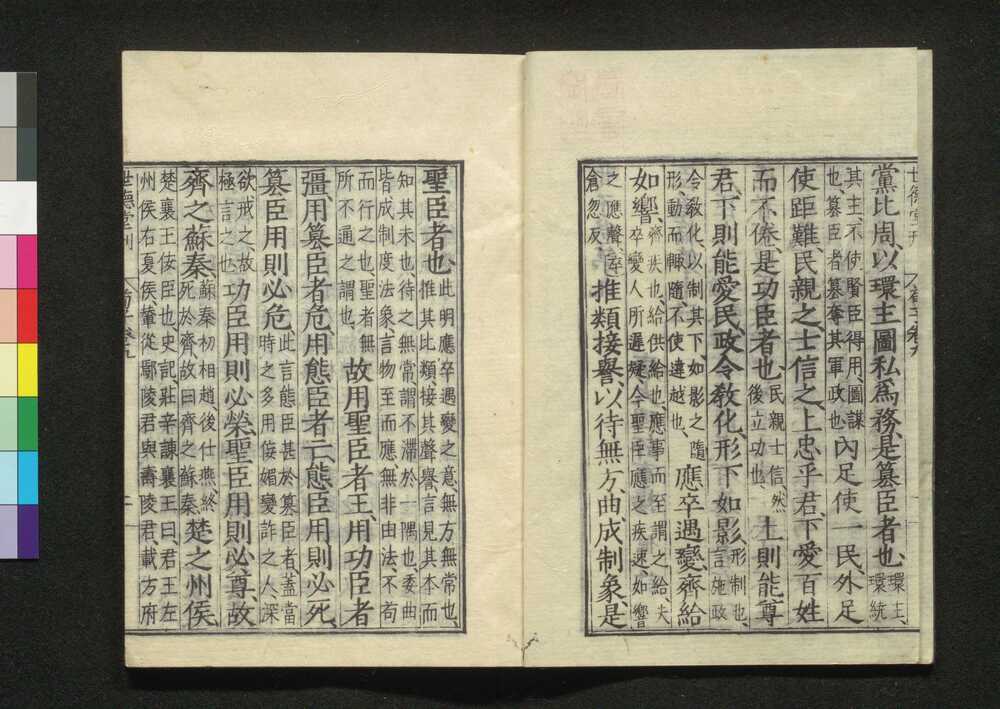 世德堂刊
荀子卷九
黨比周、以環主圖私爲務、是篡臣者也、環主、
環統
其主不使賢臣得用圖謀
也篡臣者篡奪其軍政也
內足使一民、外足
使距難、民親之、士信之、上忠乎君、下愛百姓
而不倦、是功臣者也、民親士信然
後立功也、
上則能尊
君、下則能愛民、政令敎化、形下如影、形制也、
言施政
令敎化以制其下、如影之隨
形、動而輒隨、不使違越也、
應卒遇變、齊給
如響、齊疾也、給供給也、應事而至謂之給、夫
卒變人所遲疑、今聖臣應之疾速、如響
之應聲、卒
倉忽反、
推類接譽、以待無方、曲成制象、是
聖臣者也、此明應卒遇變之意、無方無常也、
推其比類接其聲譽言見其本而
知其末也、待之無常、謂不滯於一隅也、委曲
皆成制度法象、言物至而應、無非由法、不苟
而行之也、聖者無
所不通之謂也、
故用聖臣者王、用功臣者
彊、用篡臣者危、用態臣者亡、態臣用則必死、
篡臣用則必危、此言態臣甚於篡臣者、蓋當
時之多用佞媚變詐之人、深
欲戒之、故
極言之也
功臣用則必榮、聖臣用則必尊、故
齊之蘇秦、蘇秦初相趙後仕燕、終
死於齊、故曰齊之蘇秦、
楚之州侯、
楚襄王佞臣也、史記、莊辛諫襄王曰、君王左
州侯右夏侯、輦從鄢陵君與壽陵君、載方府
世德堂刊
荀子卷九